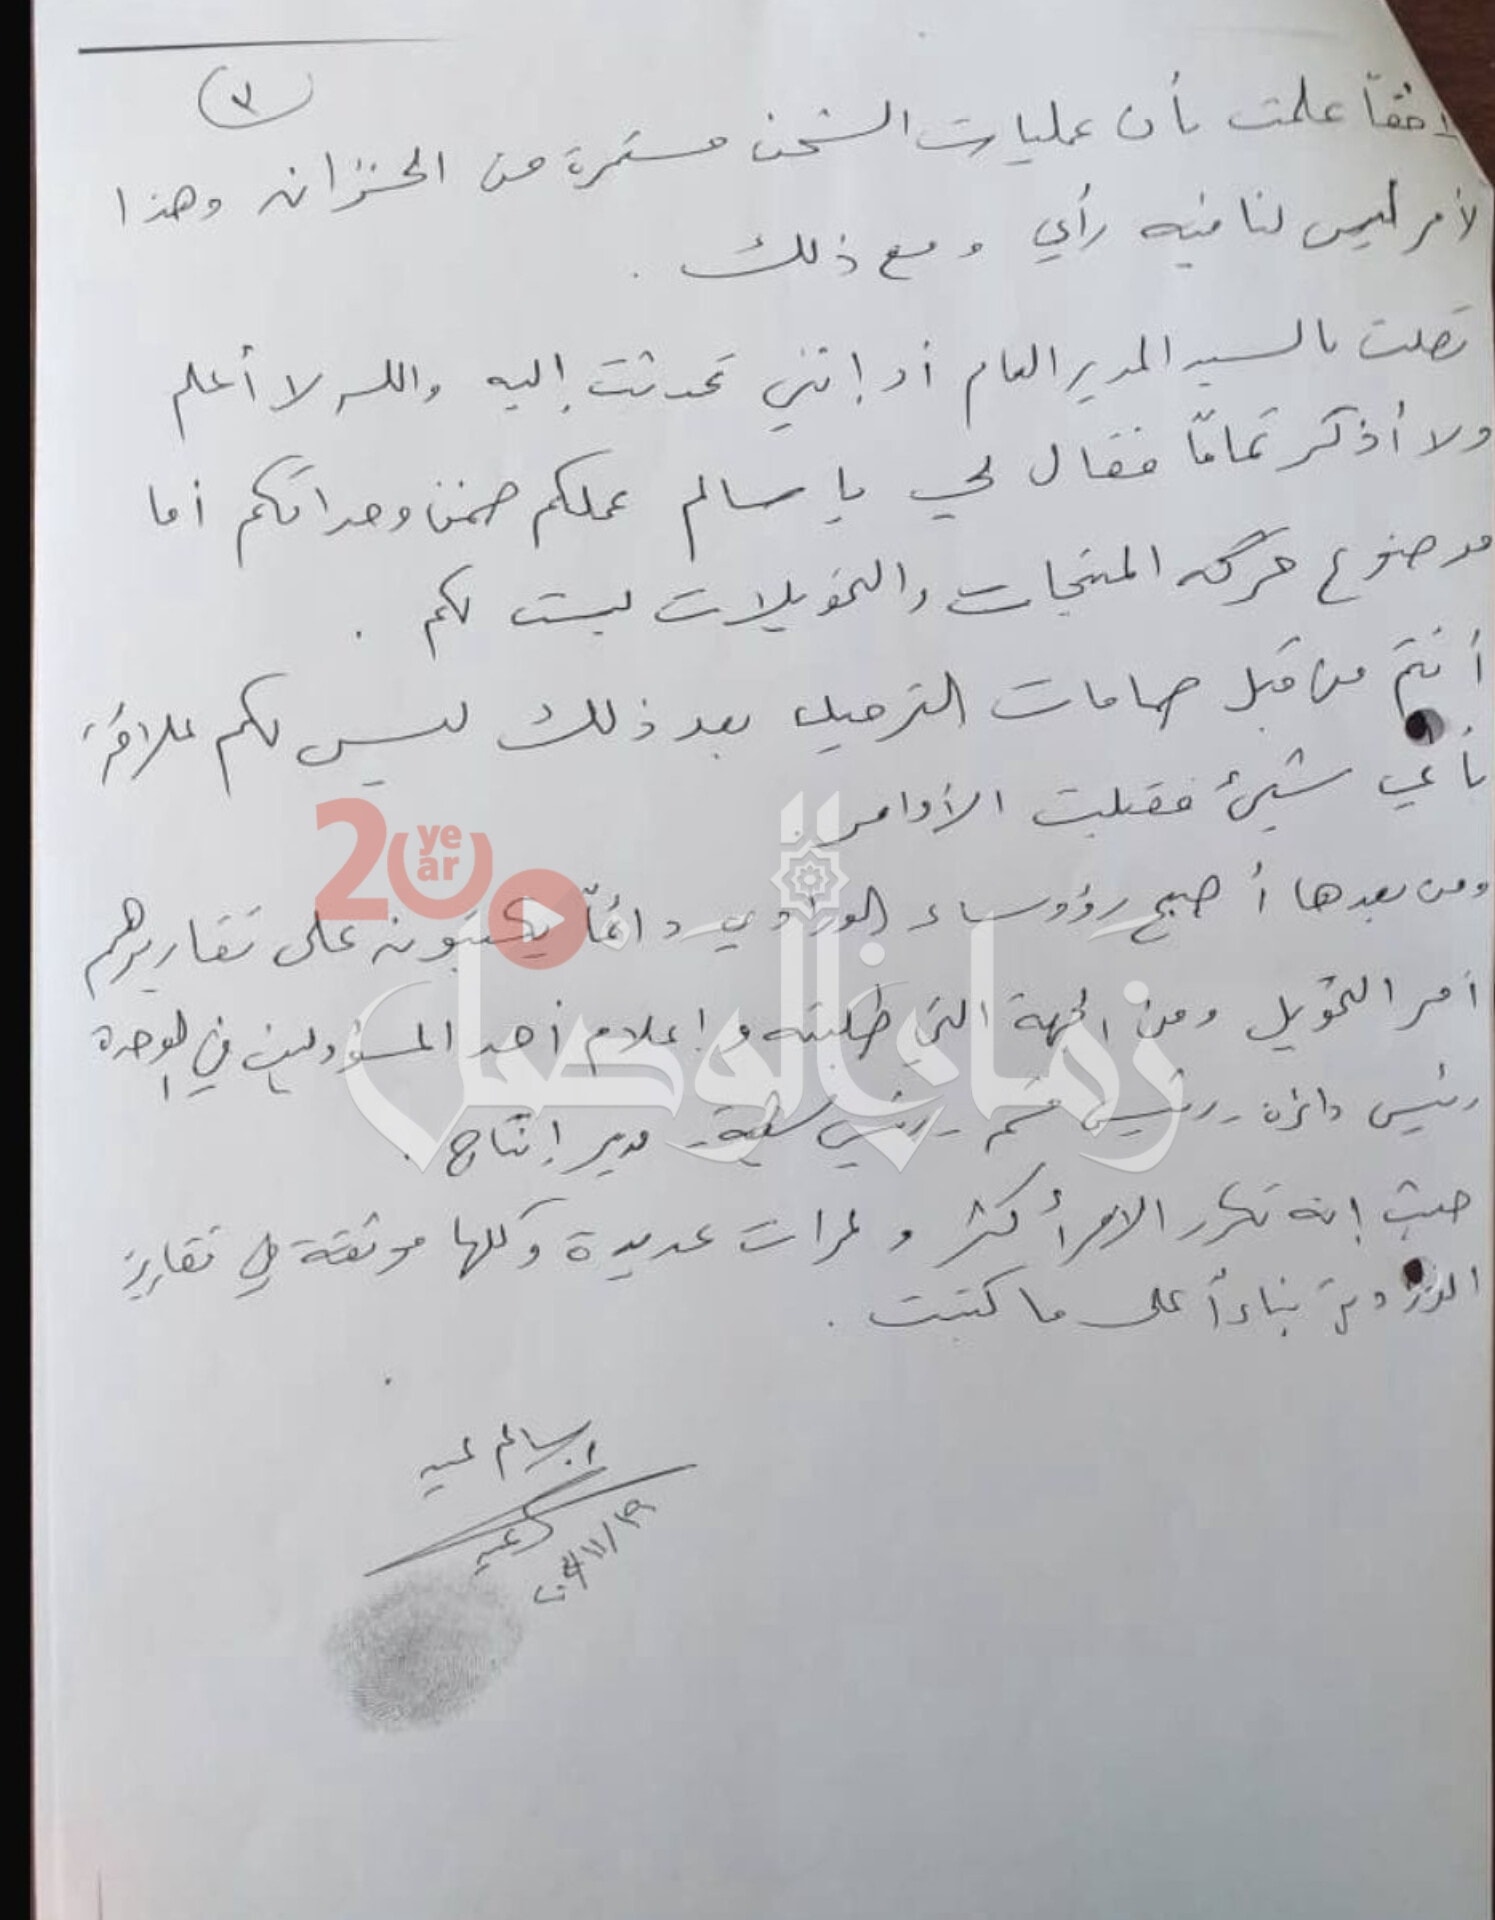 ٣
لاحقاً علمت بأن عمليات الشحن مستمرة من الخزان وهذا
لأمر ليس لنا فيه رأي ومع ذلك .
تصلت بالسيد المدير العام أو إنني تحدثت إليه والله لا أعلم
ولا أذكر تماماً فقال لي يا سالم عملكم ضمن وحداتكم أما
موضوع حركة المنتجات والتحويلات ليست لكم .
أنتم من قبل صمامات الترحيل بعد ذلك ليس لكم علاقة
بأي شيئ فقبلت الأوامر .
ومن بعدها أصبح رؤوساء الورادي دائماً يكتبون على تقاريرهم
أمر التحويل ومن الجهة التي طلبته وإعلام أحد المسؤولين في الوحدة
رئيس دائرة - رئيس قسم - رئيس شعبة - مدير إنتاج .
حيث إنه تكرر الامر أكثر ولمرات عديدة وكلها موثقة في تقارير
بناءاً على ما كتبت .
سالم عيد
20 year
زمان الوصل